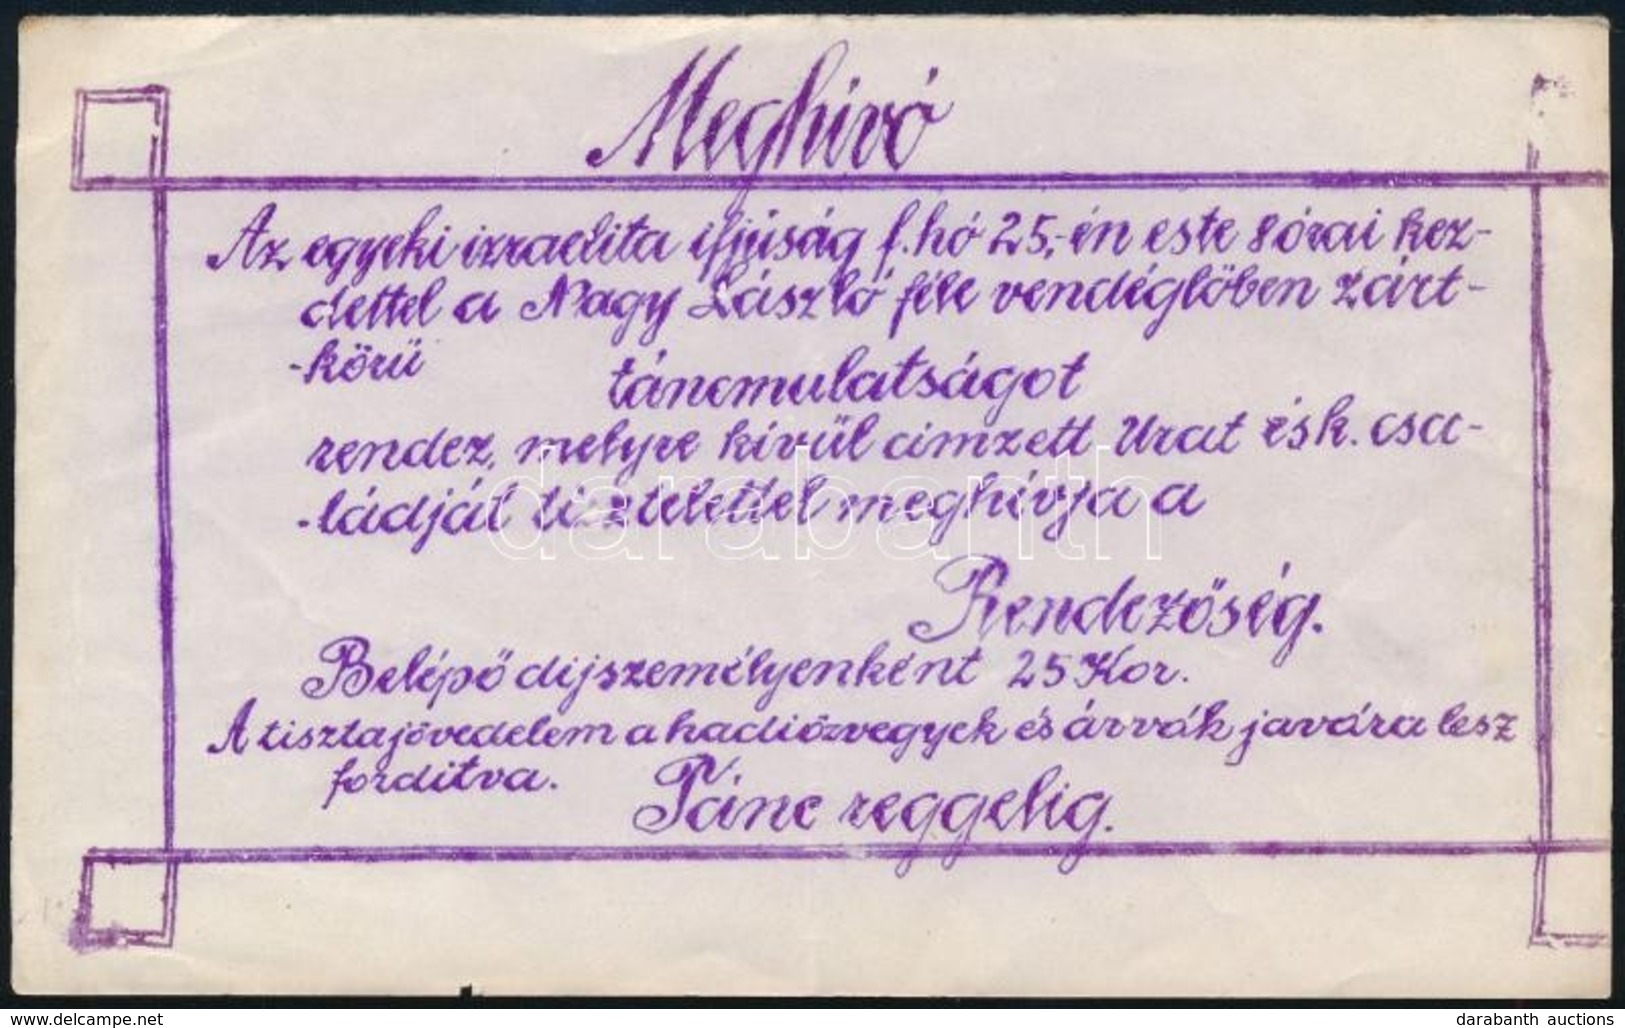 Meghívó
Az egyeki izraelita ifjúság f. hó 25,-én este 8 órai kez-
dettel a Nagy László féle vendéglőben zárt-
-körü
táncmulatságot
rendez, melyre kívül cimzett Urat és k. csa-
-ládját tisztelettel meghívja a
Rendezőség.
Belépő dij személyenként 25 Kor.
A tiszta jövedelem a hadiözvegyek és árvák javára lesz
forditva.
Tánc reggelig.
darabanth
www.delcampe.net
darabanth auctions